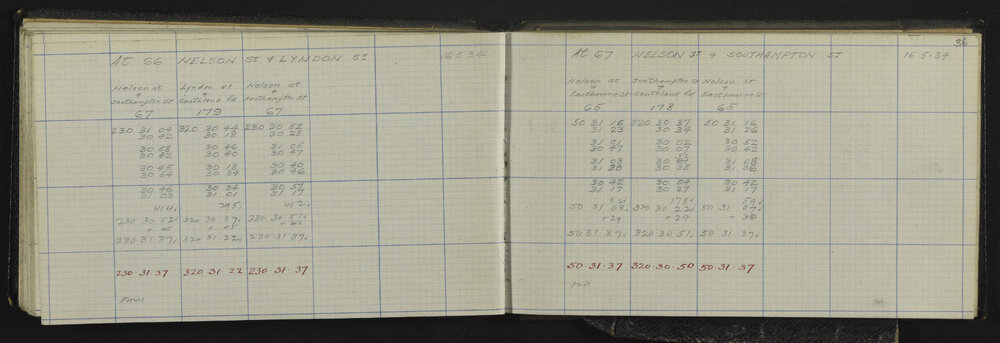 At 66 NELSON ST & LYNDON ST 16.5.34
Nelson st Lyndon st Nelson st
& & &
Southampton St Southland Rd Southampton St
67 179 67
230 31 04 320 30 44 230 30 52
30 42 30 18 30 28
30 58 30 46 31 05
30 42 30 40 30 47
30 45 30 18 30 40
30 54 30 34 30 46
30 46 30 34 30 57
31 03 31 01 31 17
414 295 412
230 30 52 320 30 37 230 30 51
+ 45 + 45
230.31.37 320.31.22 230.31.37
230 31 37 320 31 22 230 31 37
Final
36
At 67 NELSON ST & SOUTHAMPTON ST 16.5.34
Nelson st Southampton St Nelson st
& & &
Eastbourne St Southland Rd Eastbourne St
65 178 65
50 31 16 320 30 37 50 31 16
31 23 30 34 31 26
31 01 30 02 30 52
30 47 30 07 30 47
31 08 31 08
31 28 30 35 31 36
30 42 30 04 30 42
31 17 30 27 31 17
62 178 54
50 31 08 320 30 22 50 31 07
+29 +29 + 30
50 31 37 320 30 51 50 31 37
50.31.37 320.30.50 50.31.37